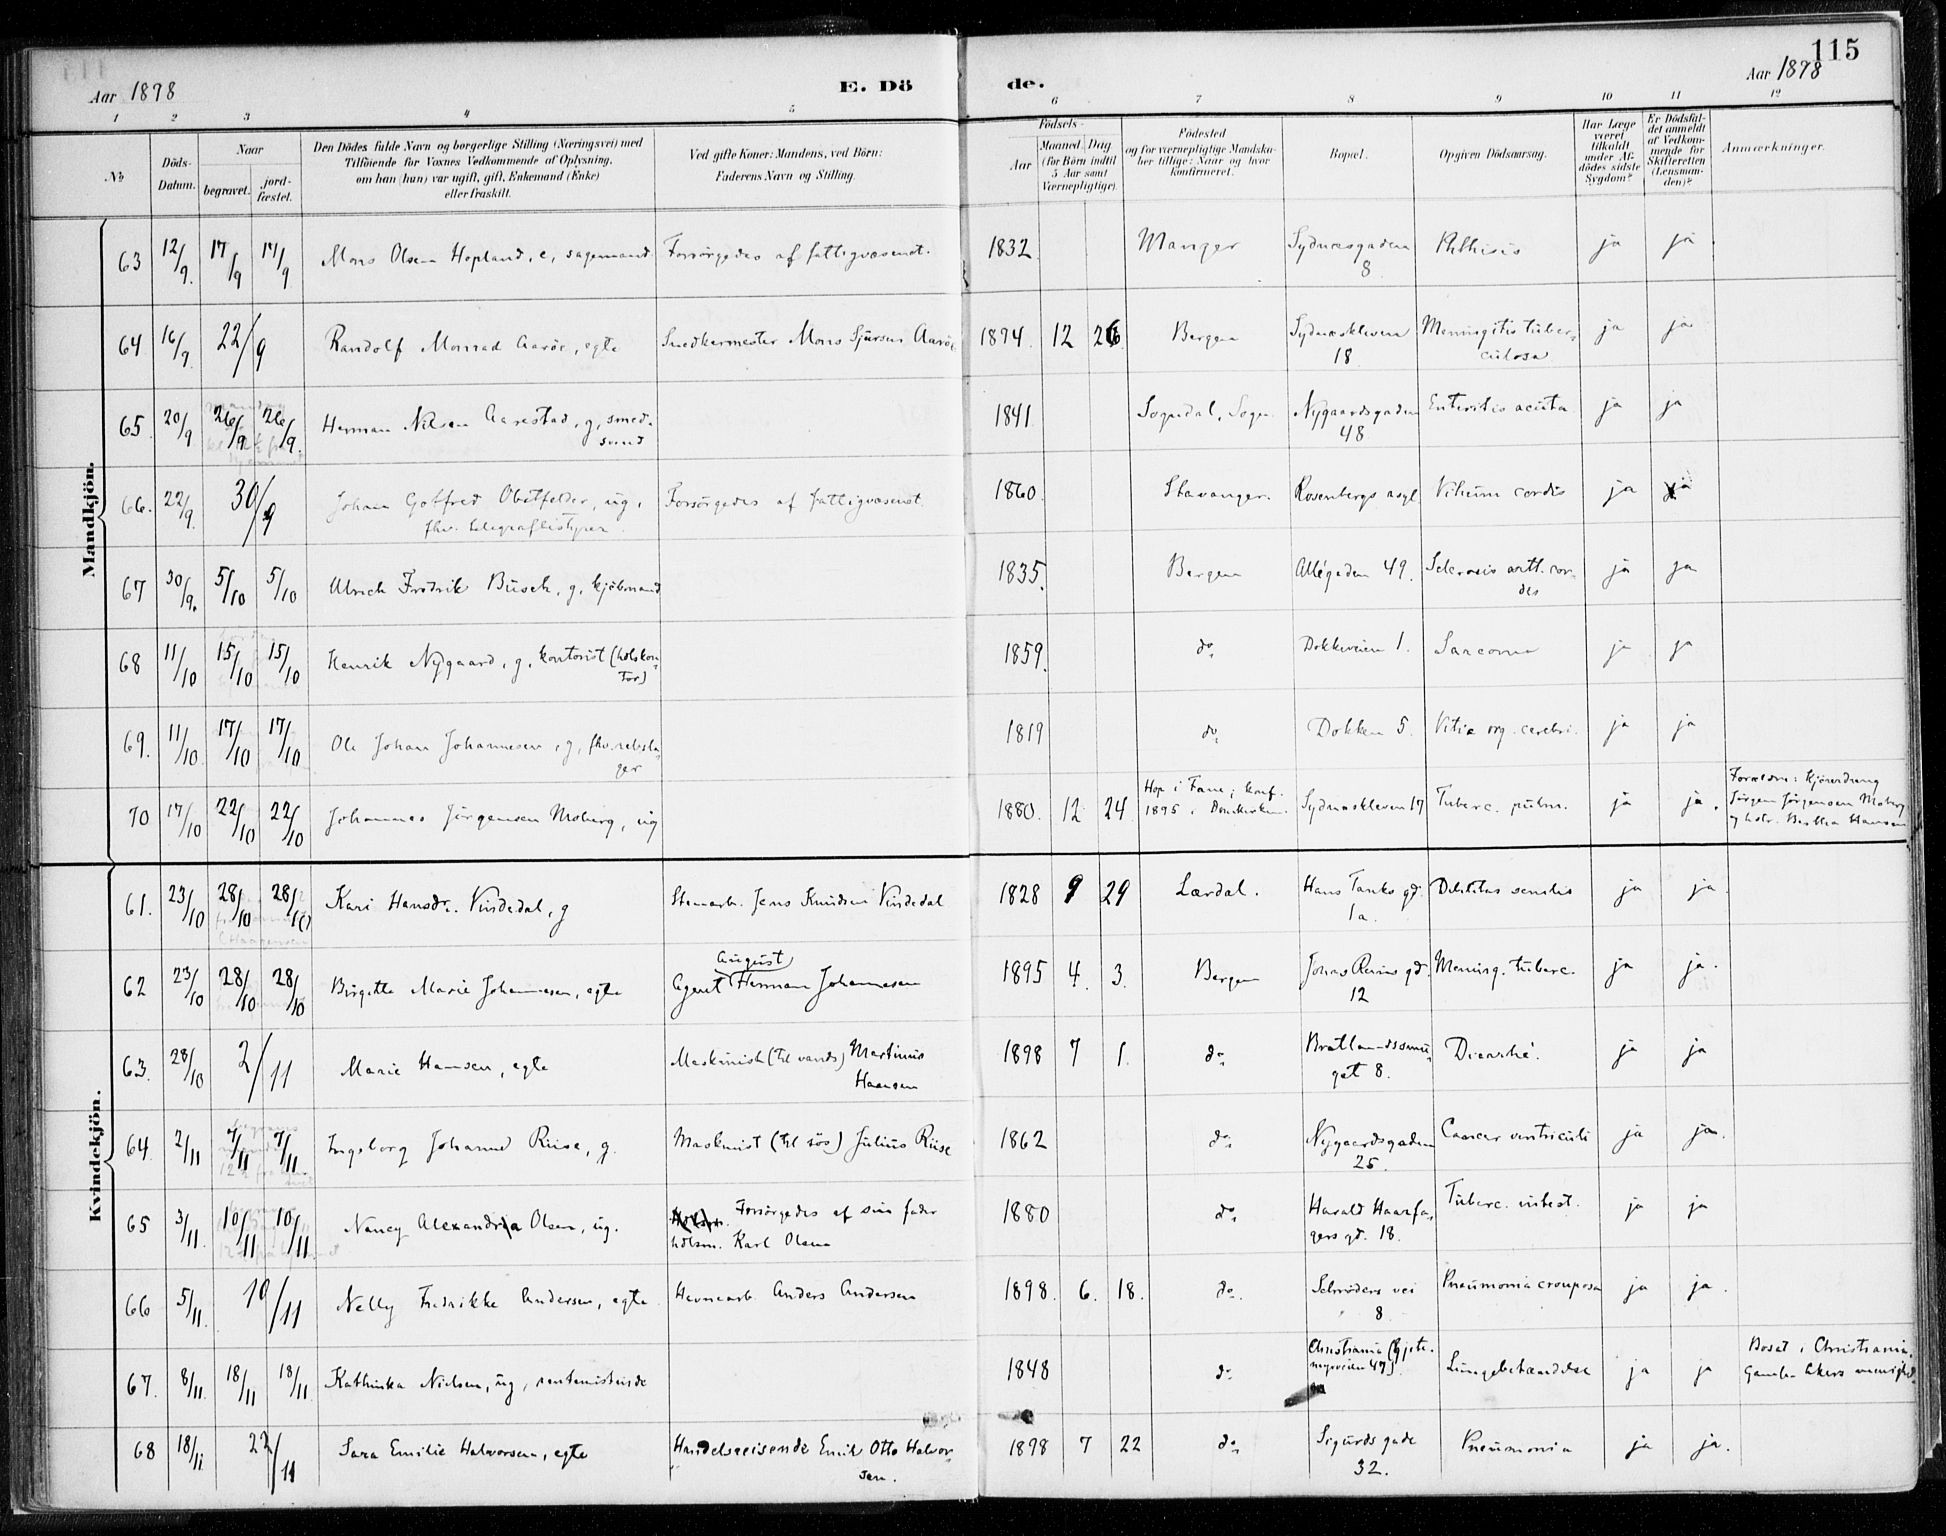 115
Aar 1898
E. Döde.
Aar 1898
1 2 3 4 5 6 7 8 9 10 11 12
No
Döds-Datum.
Naar
begravet.
jordfæstet.
Den Dödes fulde Navn og borgerlige Stilling (Næringsvei) med
Tilföiende for Voxnes Vedkommende af Oplysning,
om han (hun) var ugift, gift, Enkemand (Enke)
eller fraskilt.
Ved gifte Koner: Mandens, ved Börn:
Faderens Navn og Stilling.
Födsels-
Aar
Maaned Dag
(for Börn indtil
5 Aar samt
Værnepligtige).
Födested
og for værnepligtige Mandskaber
tillige: Naar og hvor
konfirmeret.
Bopæl.
Opgiven Dödsaarsag.
Har Læge
været
tilkaldt
under Afdödes
sidste
Sygdom?
Er Dödsfaldet
anmeldt
af Vedkommende
for
Skifteretten
(Lensmanden)?
Anmærkninger.
Mandkjön.
63 12/9. 17/9 17/9 Mons Olsen Hopland, e, sagemand Forsörgedes af fattigvæsenet. 1832 Manger Sydnæsgaden 8 Phthisis ja ja
64 16/9. 22/9 Randolf Monrad Aaröe, egte Snedkermester Mons Sjursen Aaröe 1894. 12 26 Bergen Sydneskleven 18 Meningitis tuberculosa ja ja
65 20/9 26/9 26/9. Herman Nilsen Aarestad, g, smedsvend 1841 Sogndal, Sogn Nygaardsgaden 48 Enteritis acuta ja ja
66. 22/9. 30/9 Johan Gotfred Obstfelder, ug, fhv. telegrafbestyrer Forsörgedes af fattigvæsenet. 1860. Stavanger. Rosenbergs asyl Vitium cordis ja ja
67 30/9. 5/10 5/10 Ulrich Fredrik Busch, g, kjöbmand 1835. Bergen Allégaden 49. Sclerosis artt. cordis ja ja
68 11/10 15/10 15/10 Henrik Nygaard, g, kontorist (hdlskontor) 1859. do. Dokkeveien 1. Sarcoma ja ja
69. 11/10 17/10 17/10 Ole Johan Johannesen, g, fhv. rebslager 1819 do. Dokken 5. Vitia org. cerebri. ja ja
70 17/10 22/10 22/10 Johannes Jörgensen Moberg, ug 1880. 12 24 Hop i Fane; konf. 1895 i Domkirken. Sydneskleven 17 Tuberc. pulm. ja ja. Forældre: Kjöredreng Jörgen Jörgensen Moberg og hstr. Berthe Hansen
Kvindekjön.
61. 23/10 28/10 28/10 Kari Hansdr. Vindedal, g Stenarb. Jens Knudsen Vindedal 1828 9 29 Lærdal. Hans Tanks gd. 1a. Debilitas senilis ja ja.
62 23/10 28/10 28/10 Birgitte Marie Johannesen, egte Agent August Herman Johannesen 1895 4. 3. Bergen Jonas Reins gd. 12 Mening. tuberc. ja ja.
63. 28/10 2/11 Marie Hansen, egte Maskinist (til vands) Martinus Hansen 1898 7 1. do. Bratlandssmuget 8. Diarrhé. ja ja
64. 2/11 7/11 7/11 Ingeborg Johanne Riise, g. Maskinist (til sös) Julius Riise 1862 do. Nygaardsgaden 25. Cancer ventriculi ja ja.
65 3/11. 10/11 10/11. Nancy Alexandria Olsen, ug. Forsörgedes af sin fader hdlsm. Karl Olsen 1880 do. Harald Haarfagers gd. 18. Tuberc. intest. ja ja
66 5/11. 10/11 Nelly Fredrikke Andersen, egte Havnearb. Anders Andersen 1898. 6. 18. do. Schröders vei 8 Pneumonia crouposa ja ja.
67. 8/11. 18/11 18/11. Kathinka Nielsen, ug, rentenistinde 1848 do. Christiania (Gjetemyrveien 47) Lungebetændelse ja ja Bosat i Christiania. Gamle Akers menighed
68 18/11 22/11 Sara Emilie Halvorsen, egte Handelsreisende Emil Otto Halvorsen. 1898 7 22 do. Sigurds gade 32. Pneumonia ja ja.